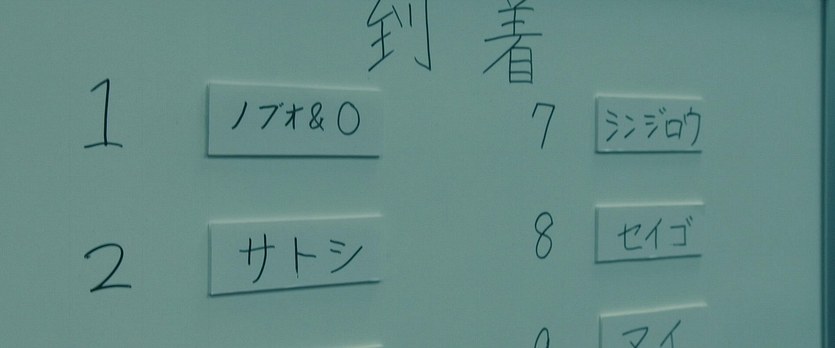 到着
1 ノブオ&O
2 サトシ
7 シンジロウ
8 セイゴ
9 マイ